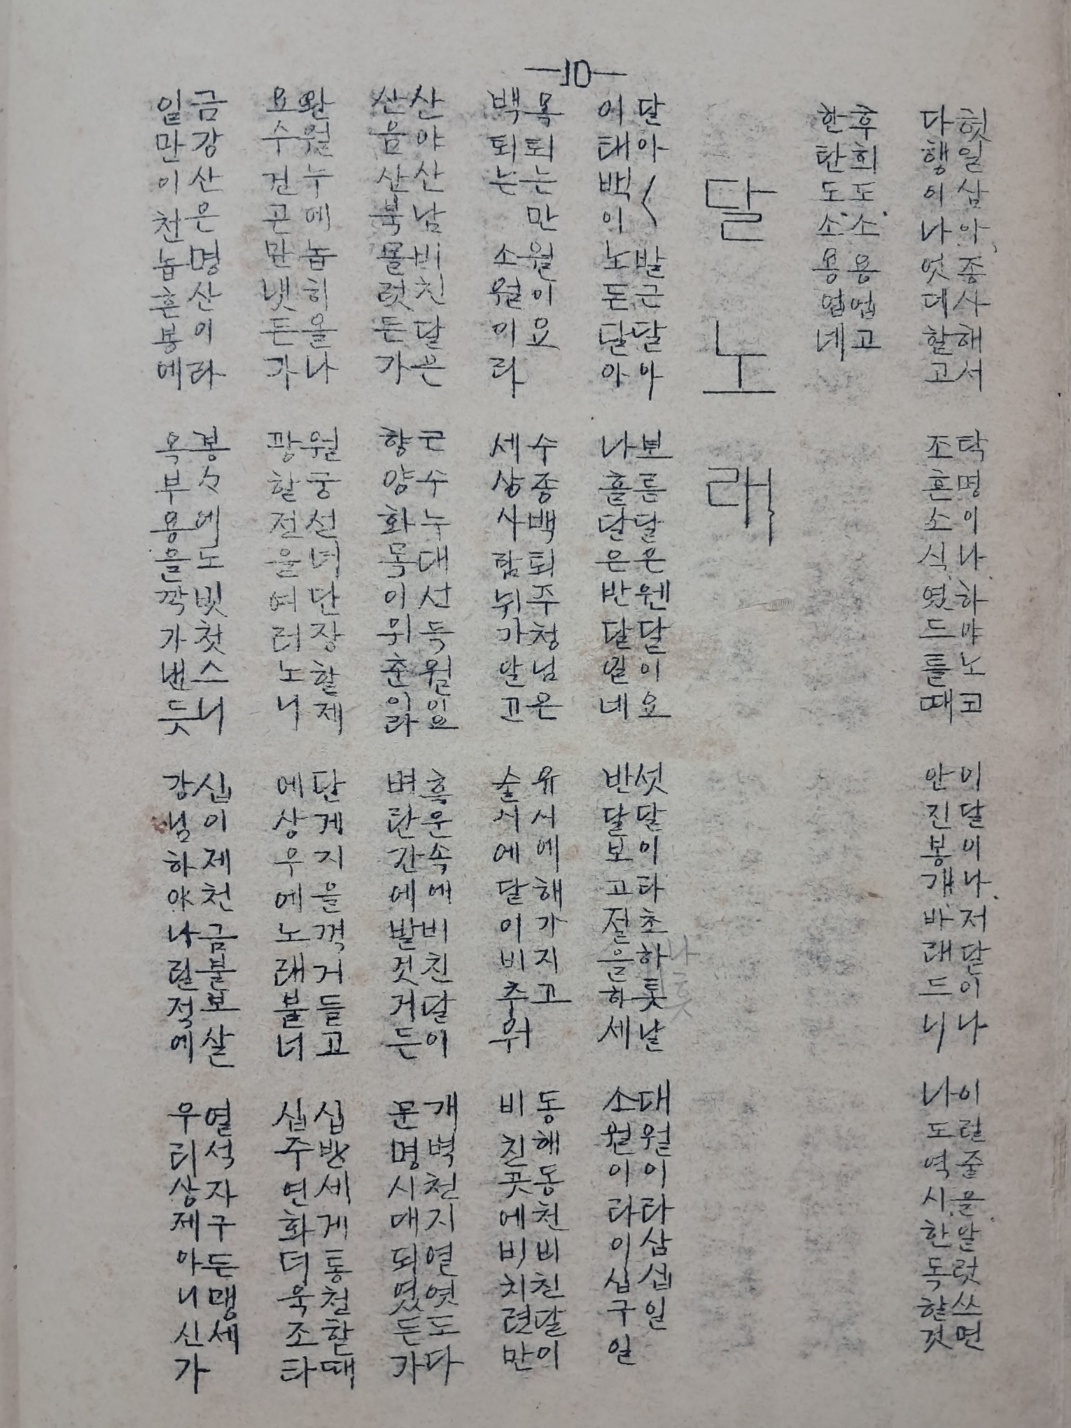 —10—
헛일삼아 종사해서
다행이나 엇데할고
탁명이나 하야노코
조흔소식 였드를때
이달이나 저달이나
안진봉개 바래드니
이럴줄을 알럿쓰면
나도역시 한독할것
후회도 소용업고
한탄도 소용업네
달노래
달아〱 발근달아
이태백이 노든달아
보름달은 웬달이요
나흘달은 반달일네
섯달이라 초하룻날
반달보고 절을하세
대월이라 삼십일
소월이라 이십구일
목퇴는 만월이요
백퇴는 소월이라
수종백퇴 주청님은
세상사람 뉘가알고
유서에 해가지고
술서에 달이비추워
동해동천 비친달이
비친곳에 비치련만
산야산남 비친달은
산음산북 몰럿든가
근수누대 선득월인요
향양화목 이위춘이라
흑운속에 비친달이
벼란간에 발것거든
개벽천지 열엿도다
문명시대 되엿든가
완월누에 놉히올나
요수건곤 만냇든가
월궁선녀 단장할제
광할전을 여러노니
단게지을 꺽거들고
에상우에 노래불너
십방세게 통철할때
십주연화 더욱조타
금강산은 명산이라
일만이천 놉흔봉에
봉々에도 빗첫스니
옥부용을 깍가낸듯
십이제천 금불보살
강님하야 나릴적에
열석자 구든맹세
우리상제 아니신가